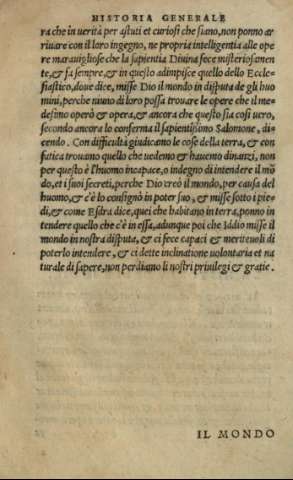 HISTORIA GENERALE
ra che in verità per astuti et curiosi che siano, non ponno ar
rivare con il loro ingegno, ne propria intelligentia alle ope
re maravigliose che la sapientia Divina fece misteriosamen
te, & fa sempre, & in questo adimpisce quello dello Eccle-
siastico, doue dice, misse Dio il mondo in disputa de gli huo
mini, perche niuno di loro possa trouare le opere che il me-
desimo operò & opera, & ancora che questo sia cosi uero,
secondo ancora lo conferma il sapientissimo Salomone, di-
cendo. Con difficultà giudicamo le cose della terra, & con
fatica trouamo quello che uedemo & hauemo dinanzi, non
per questo è l'huomo incapace, o indegno di intendere il mõ
do, et i suoi secreti, perche Dio creò il mondo, per causa del
huomo, & c'è lo consignò in poter suo, & misse sotto i pie-
di, & come Esdra dice, quei che habitano in terra, ponno in
tendere quello che c'è in essa, adunque poi che Iddio misse il
mondo in nostra disputa, & ci fece capaci & meriteuoli di
poterlo intendere, & ci dette inclinatione uolontaria et na
turale di sapere, non perdiamo li nostri priuilegi & gratie.
IL MONDO